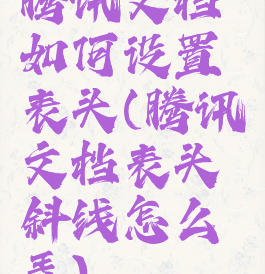 腾讯文档
如何设置
表头(腾讯
文档表头
斜线怎么
弄)